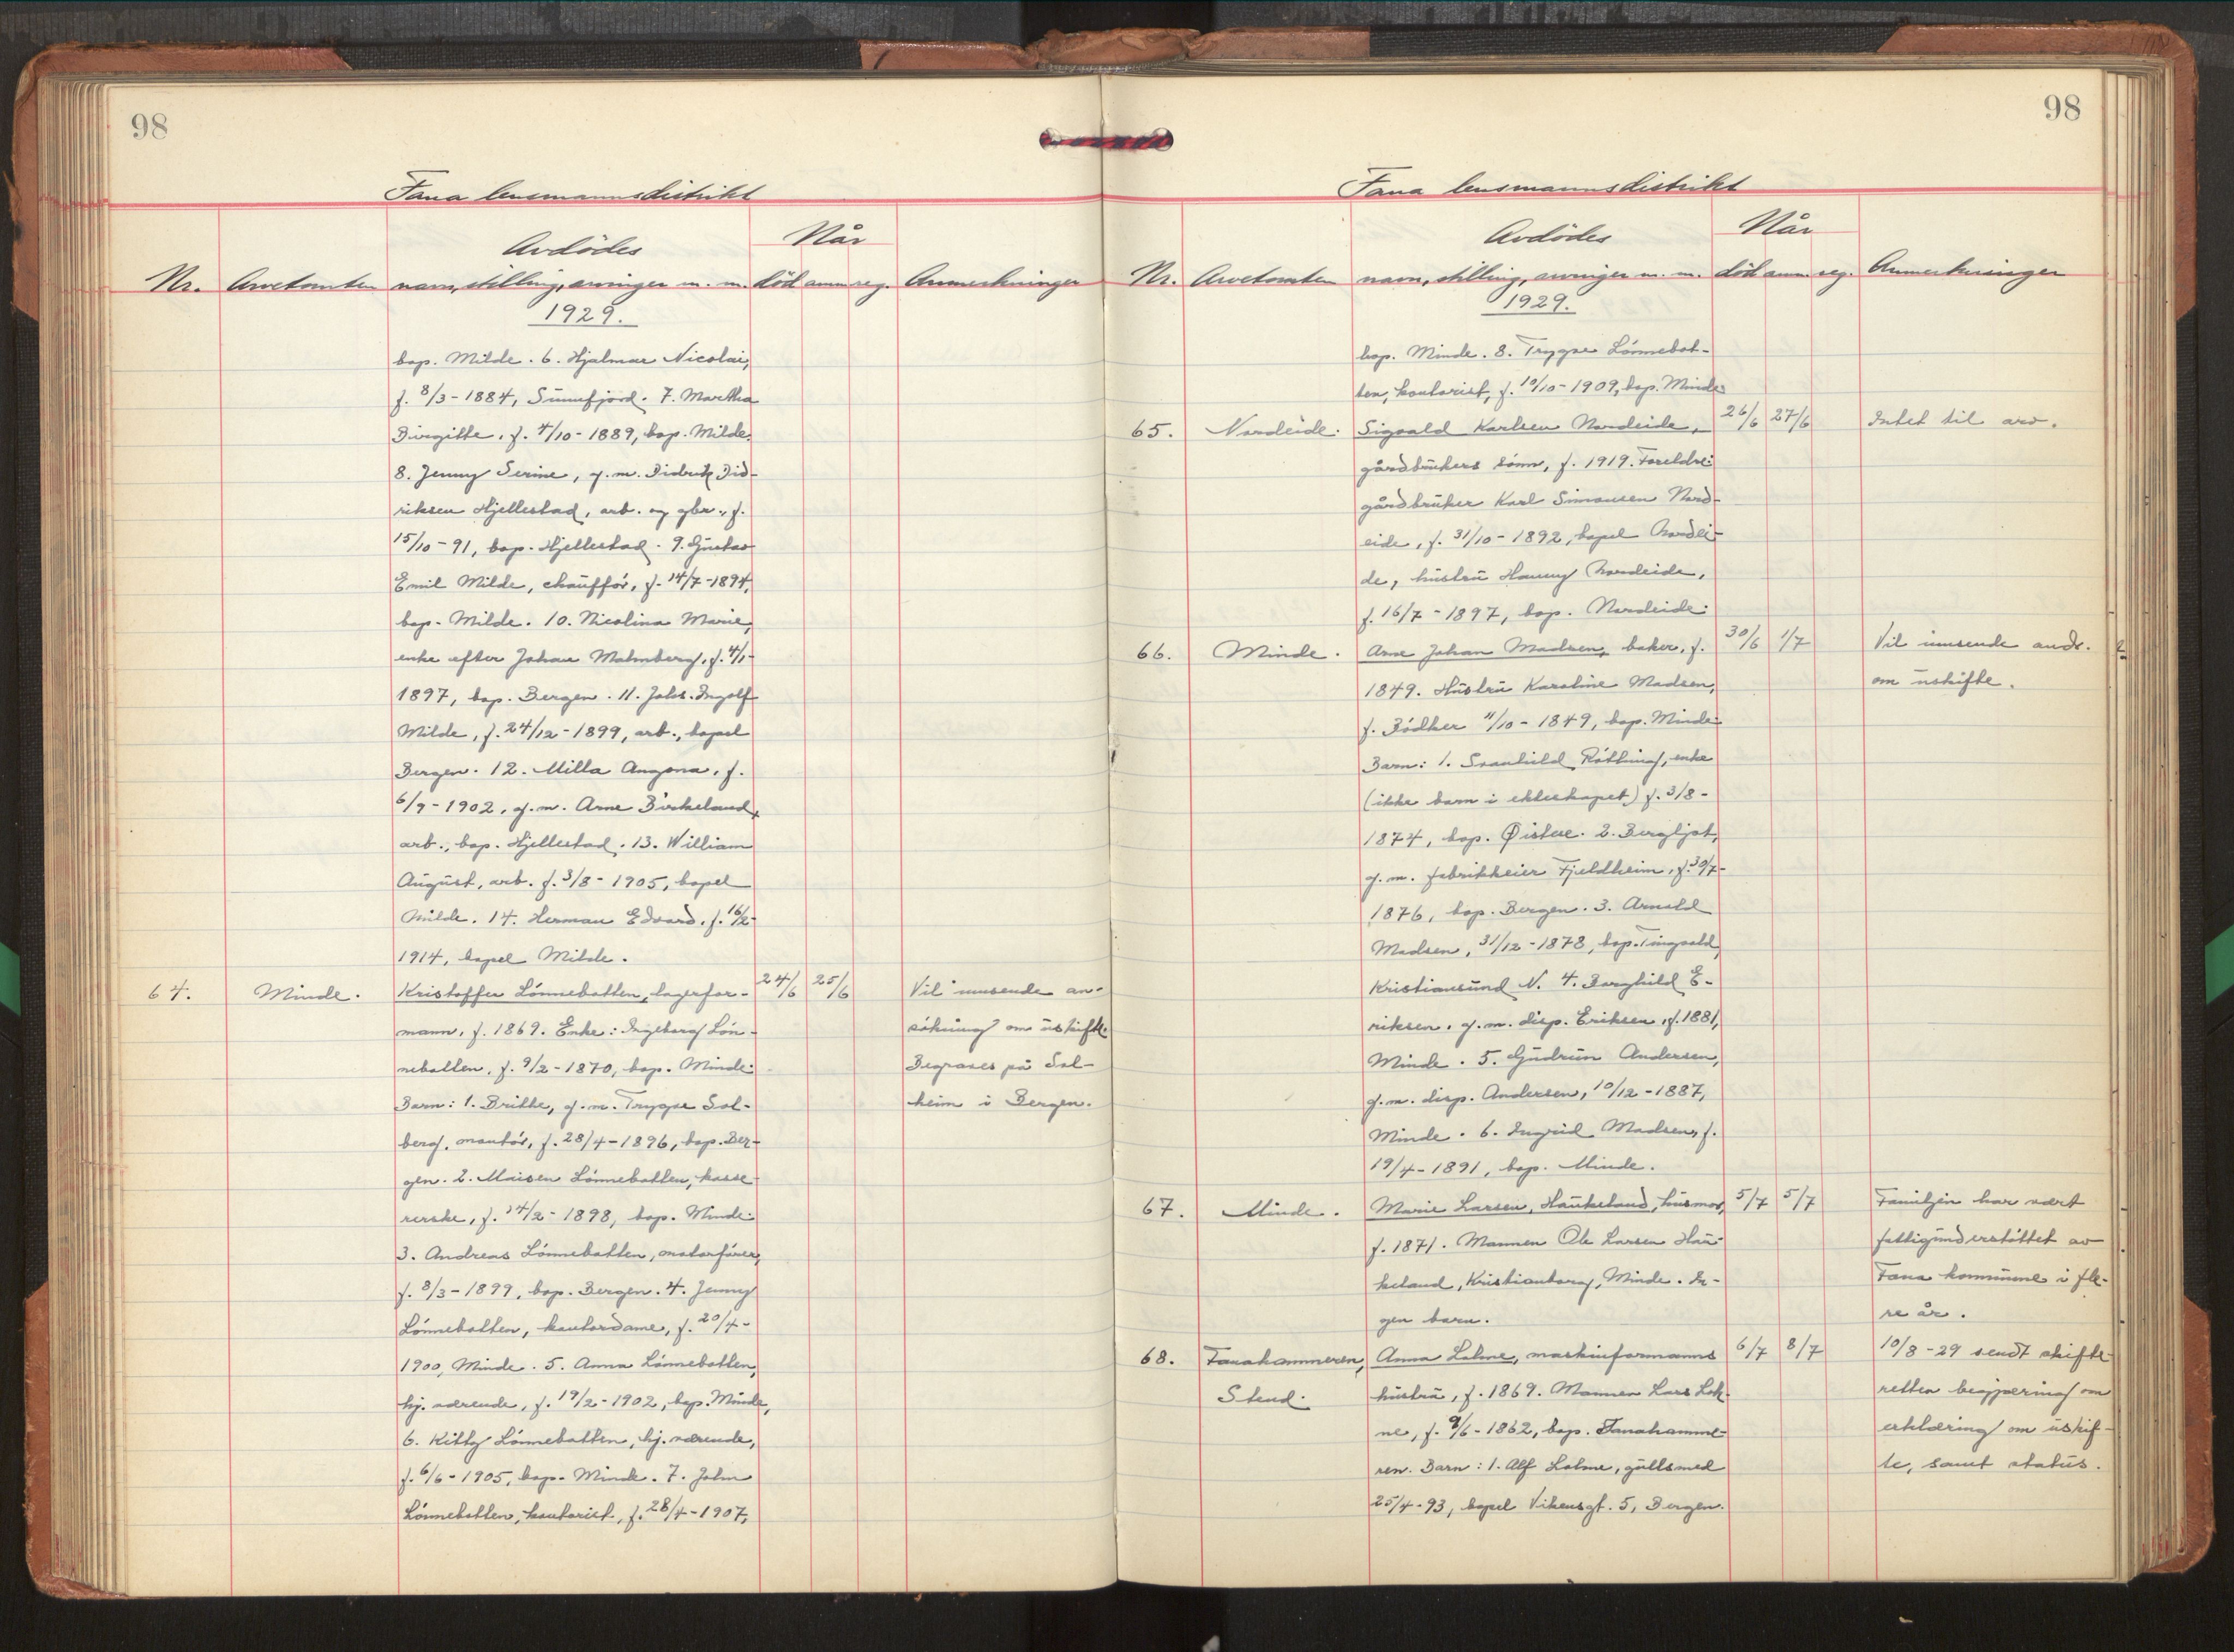 98
Fana lensmannsdistrikt
Avdödes
Når
Nr. Arvetomten navn, stilling, arvinger m. m. död anm. reg. Anmerkninger
1929.
bop. Milde. 6. Hjalmar Nicolai,
f. 8/3-1884, Sunnfjord. 7. Martha
Birgitte, f. 4/10-1889, bop. Milde.
8. Jenny Serine, g.m. Didrik Did-
riksen Hjellestad, arb. og gbr., f.
15/10-91, bop. Hjellestad. 9. Gustav
Emil Milde, chaufför, f. 14/7-1894,
bop. Milde. 10. Nicolina Marie,
enke efter Johan Malmberg, f. 4/1-
1897, bop. Bergen. 11. Johs. Ingolf
Milde, f. 24/12-1899, arb., bopel
Bergen. 12. Milla Angona, f.
6/9-1902, g.m. Arne Birkeland,
arb., bop. Hjellestad. 13. William
August, arb. f. 3/8-1905, bopel
Milde. 14. Herman Edvard, f. 16/2-
1914, bopel Milde.
64. Minde. Kristoffer Lönnebotten, lagerfor- 24/6 25/6 Vil innsende an-
mann, f. 1869. Enke: Ingeborg Lön- sökning om uskifte.
nebotten, f. 9/2-1870, bop. Minde. Begraves på Sol-
Barn: 1. Brithe, g.m. Trygve Sol- heim i Bergen.
berg, montör, f. 28/4-1896, bop. Ber-
gen. 2. Maisen Lönnebotten, kasse-
rerske, f. 14/2-1898, bop. Minde.
3. Andreas Lönnebotten, motorförer,
f. 8/3-1899, bop. Bergen. 4. Jenny
Lönnebotten, kontordame, f. 20/4-
1900, Minde. 5. Anna Lönnebotten,
hj. værende, f. 19/2-1902, bop. Minde,
6. Kitty Lönnebotten, hj. værende,
f. 6/6-1905, bop. Minde. 7. John
Lönnebotten, kontorist, f. 28/4-1907,
98
Fana lensmannsdistrikt
Avdödes
Når
Nr. Arvetomten navn, stilling, arvinger m. m. död anm. reg. Anmerkninger
1929.
bop. Minde. 8. Trygve Lönnebot-
ten, kontorist, f. 10/10-1909, bop. Minde.
65. Nordeide. Sigvald Karlsen Nordeide, 26/6 27/6 Intet til arv.
gårdbrukers sönn, f. 1919. Foreldre:
gårdbruker Karl Simonsen Nord-
eide, f. 31/10-1892, bopel Nordei-
de, hustru Hanny Nordeide,
f. 16/7-1897, bop. Nordeide.
66. Minde. Arne Johan Madsen, baker, f. 30/6 1/7 Vil innsende ands.
1849. Hustru Karoline Madsen, om uskifte.
f. Bödker 11/10-1849, bop. Minde.
Barn: 1. Svanhild Rötting, enke
(ikke barn i ekteskapet) f. 3/8-
1874, bop. Øistese. 2. Bergljot,
g.m. fabrikkeier Fjeldheim, f. 30/7-
1876, bop. Bergen. 3. Arnold
Madsen, 31/12-1878, bop. Tingvold,
Kristiansund N. 4. Borghild E-
riksen, g.m. disp. Eriksen, f. 1881,
Minde. 5. Gudrun Andersen,
g.m. disp. Andersen, 10/12-1887,
Minde. 6. Ingrid Madsen, f.
19/4-1891, bop. Minde.
67. Minde. Marie Larsen, Haukeland, husmor, 5/7 5/7 Familjen har vært
f. 1871. Mannen Ole Larsen Hau- fattigunderstöttet av
keland, Kristianborg, Minde. In- Fana kommune i fle-
gen barn. re år.
68. Fanahammeren, Anna Lohne, maskinformanns 6/7 8/7 10/8-29 sendt skifte-
Stend. hustru, f. 1869. Mannen Lars Loh- retten begjæring om
ne, f. 9/6-1862, bop. Fanahamme- erklæring om uskif-
ren. Barn: 1. Alf Lohne, gullsmed te, samt status.
25/4-93, bopel Vikensgt. 5, Bergen.